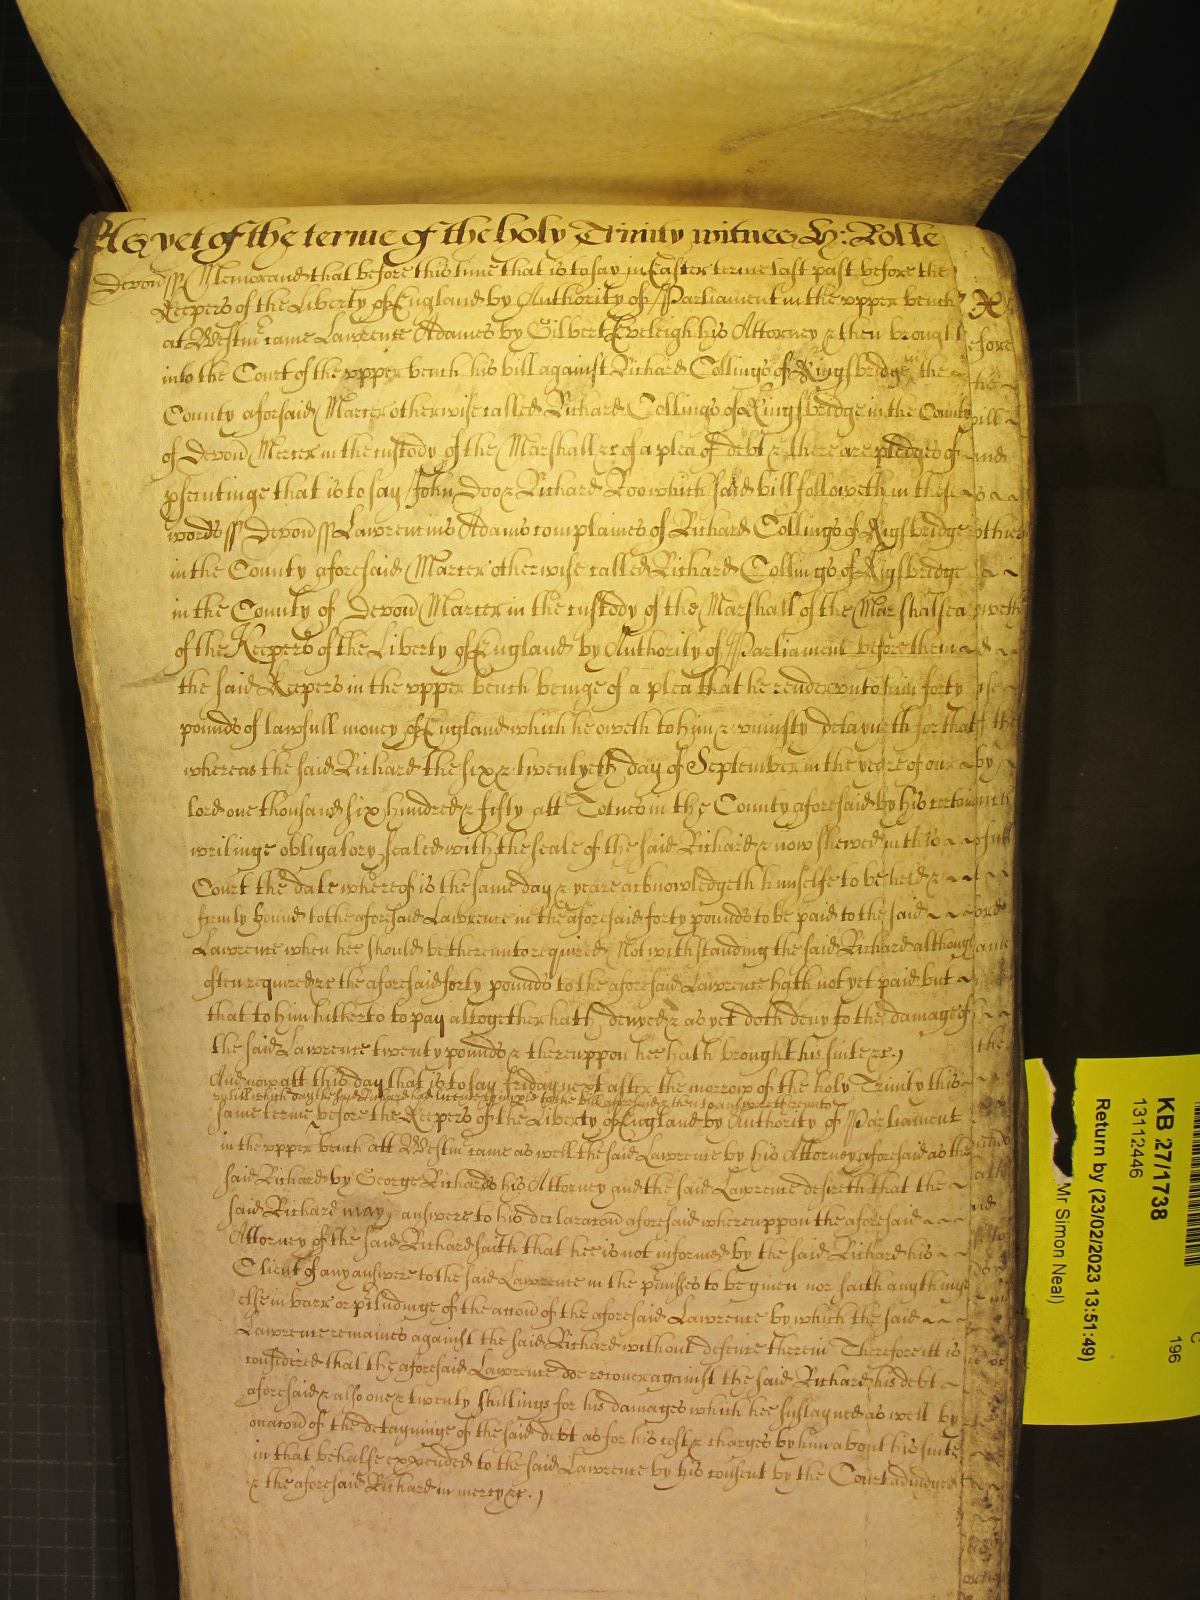 As yet of the terme of the holy Trinity witnes H: Rolle
Devon ss Memorand that before this time that is to say in Easter terme last past before the
Keepers of the Liberty of England by Authority of Parliament in the upper bench
at Westm came Lawrence Adames by Gilbert Eveleigh his Attorney & then brought
into the Court of the upper bench his bill against Richard Collings of Kingsbridge in the
County aforsaid Marcer otherwise called Richard Collings of Kingsbridge in the County
of Devon Mercer in the custody of the Marshall &c of a plea of debt & there are pledges of
psecutinge that is to say John Doo & Richard Roo which said bill followeth in these
words ss Devon ss Lawrencius Adams complaines of Richard Collings of Kigsbridge
in the County aforesaid Marcer otherwise called Richard Collings of Kigsbridge
in the County of Devon Marcer in the custody of the Marshall of the Marshalsea
of the Keepers of the Liberty of England by Authority of Parliament before them
the said Keepers in the upper bench beinge of a plea that he render unto him forty
pounds of lawfull money of England which he oweth to him & uniustly detayneth for that
whereas the said Richard the six & twentyeth day of September in the yeare of our
lord one thousand six hundred & fifty att Totnes in the County aforesaid by his certain
writinge obligatory sealed with the seale of the said Richard & now shewed in this
Court the date whereof is the same day & yeare acknowledgeth himselfe to be held &
firmly bound to the aforesaid Lawrence in the aforesaid forty pounds to be paid to the said
Lawrence when hee should be thereunto required Notwithstanding the said Richard although
often required &c the aforesaid forty pounds to the aforesaid Lawrence hath not yet paid but
that to him hitherto to pay altogether hath denyed & as yet doth deny to the damage of
the said Lawrence twenty pounds & thereuppon hee hath brought his suite &c.)
And now att this day that is to say Friday next after the morrow of the holy Trinity this
untill which day the said Richard had licence to imple to the bill aforesaid & then to answere thereunto
same terme before the Keepers of the Liberty of England by Authority of Parliament
in the upper bench att Westm came as well the said Lawrence by his Attorney aforesaid as the
said Richard by George Richards his Attorney and the said Lawrence desireth that the
said Richard may answere to his declaracon aforesaid whereuppon the aforesaid
Attorney of the said Richard saith that hee is not informed by the said Richard his
Client of any answere to the said Lawrence in the pmisses to be given nor saith any thinge
else in barr or pcludinge of the accon of the aforesaid Lawrence by which the said
Lawrence remaines against the said Richard without defence therein Therefore itt is
considered that the aforesaid Lawrence doe recover against the said Richard his debt
aforesaid & also one & twenty shillings for his damages which hee sustayned as well by
occacon of the detayninge of the said debt as for his costs & charges by him about his suite
in that behalfe expended to the said Lawrence by his consent by the Court adiudged
& the aforesaid Richard in mercy &c.)
KB 27/1738
13112446
Return by (23/02/2023 13:51:49)
Mr Simon Neal)
196